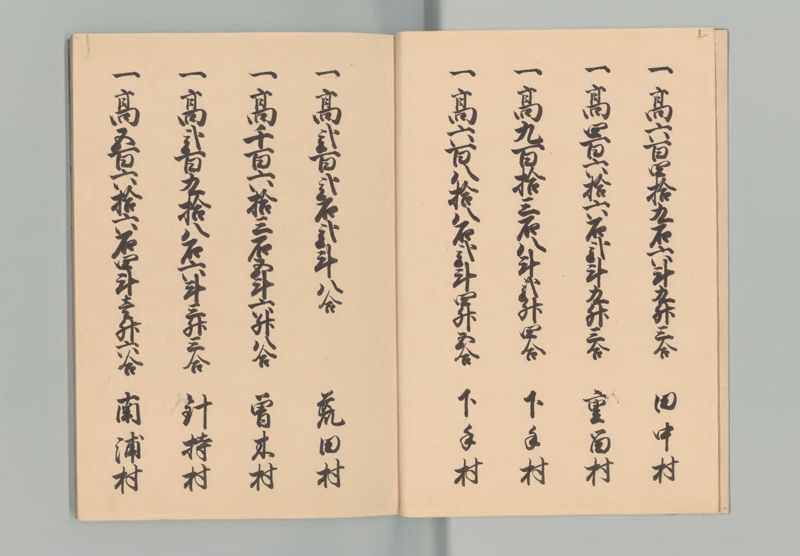 一高六百四拾九石六斗九升三合 田中村
一高四百六拾六石弐斗九升三合 重留村
一高九百拾三石八斗弐升四合 下手村
一高六百八拾八石弐斗四升五合 下手村
一高弐百弐石弐斗八合 荒田村
一高千百六拾三石五斗六升八合 曽木村
一高弐百九拾八石六斗三升三合 針持村
一高五百六拾六石四斗壱升六合 南浦村